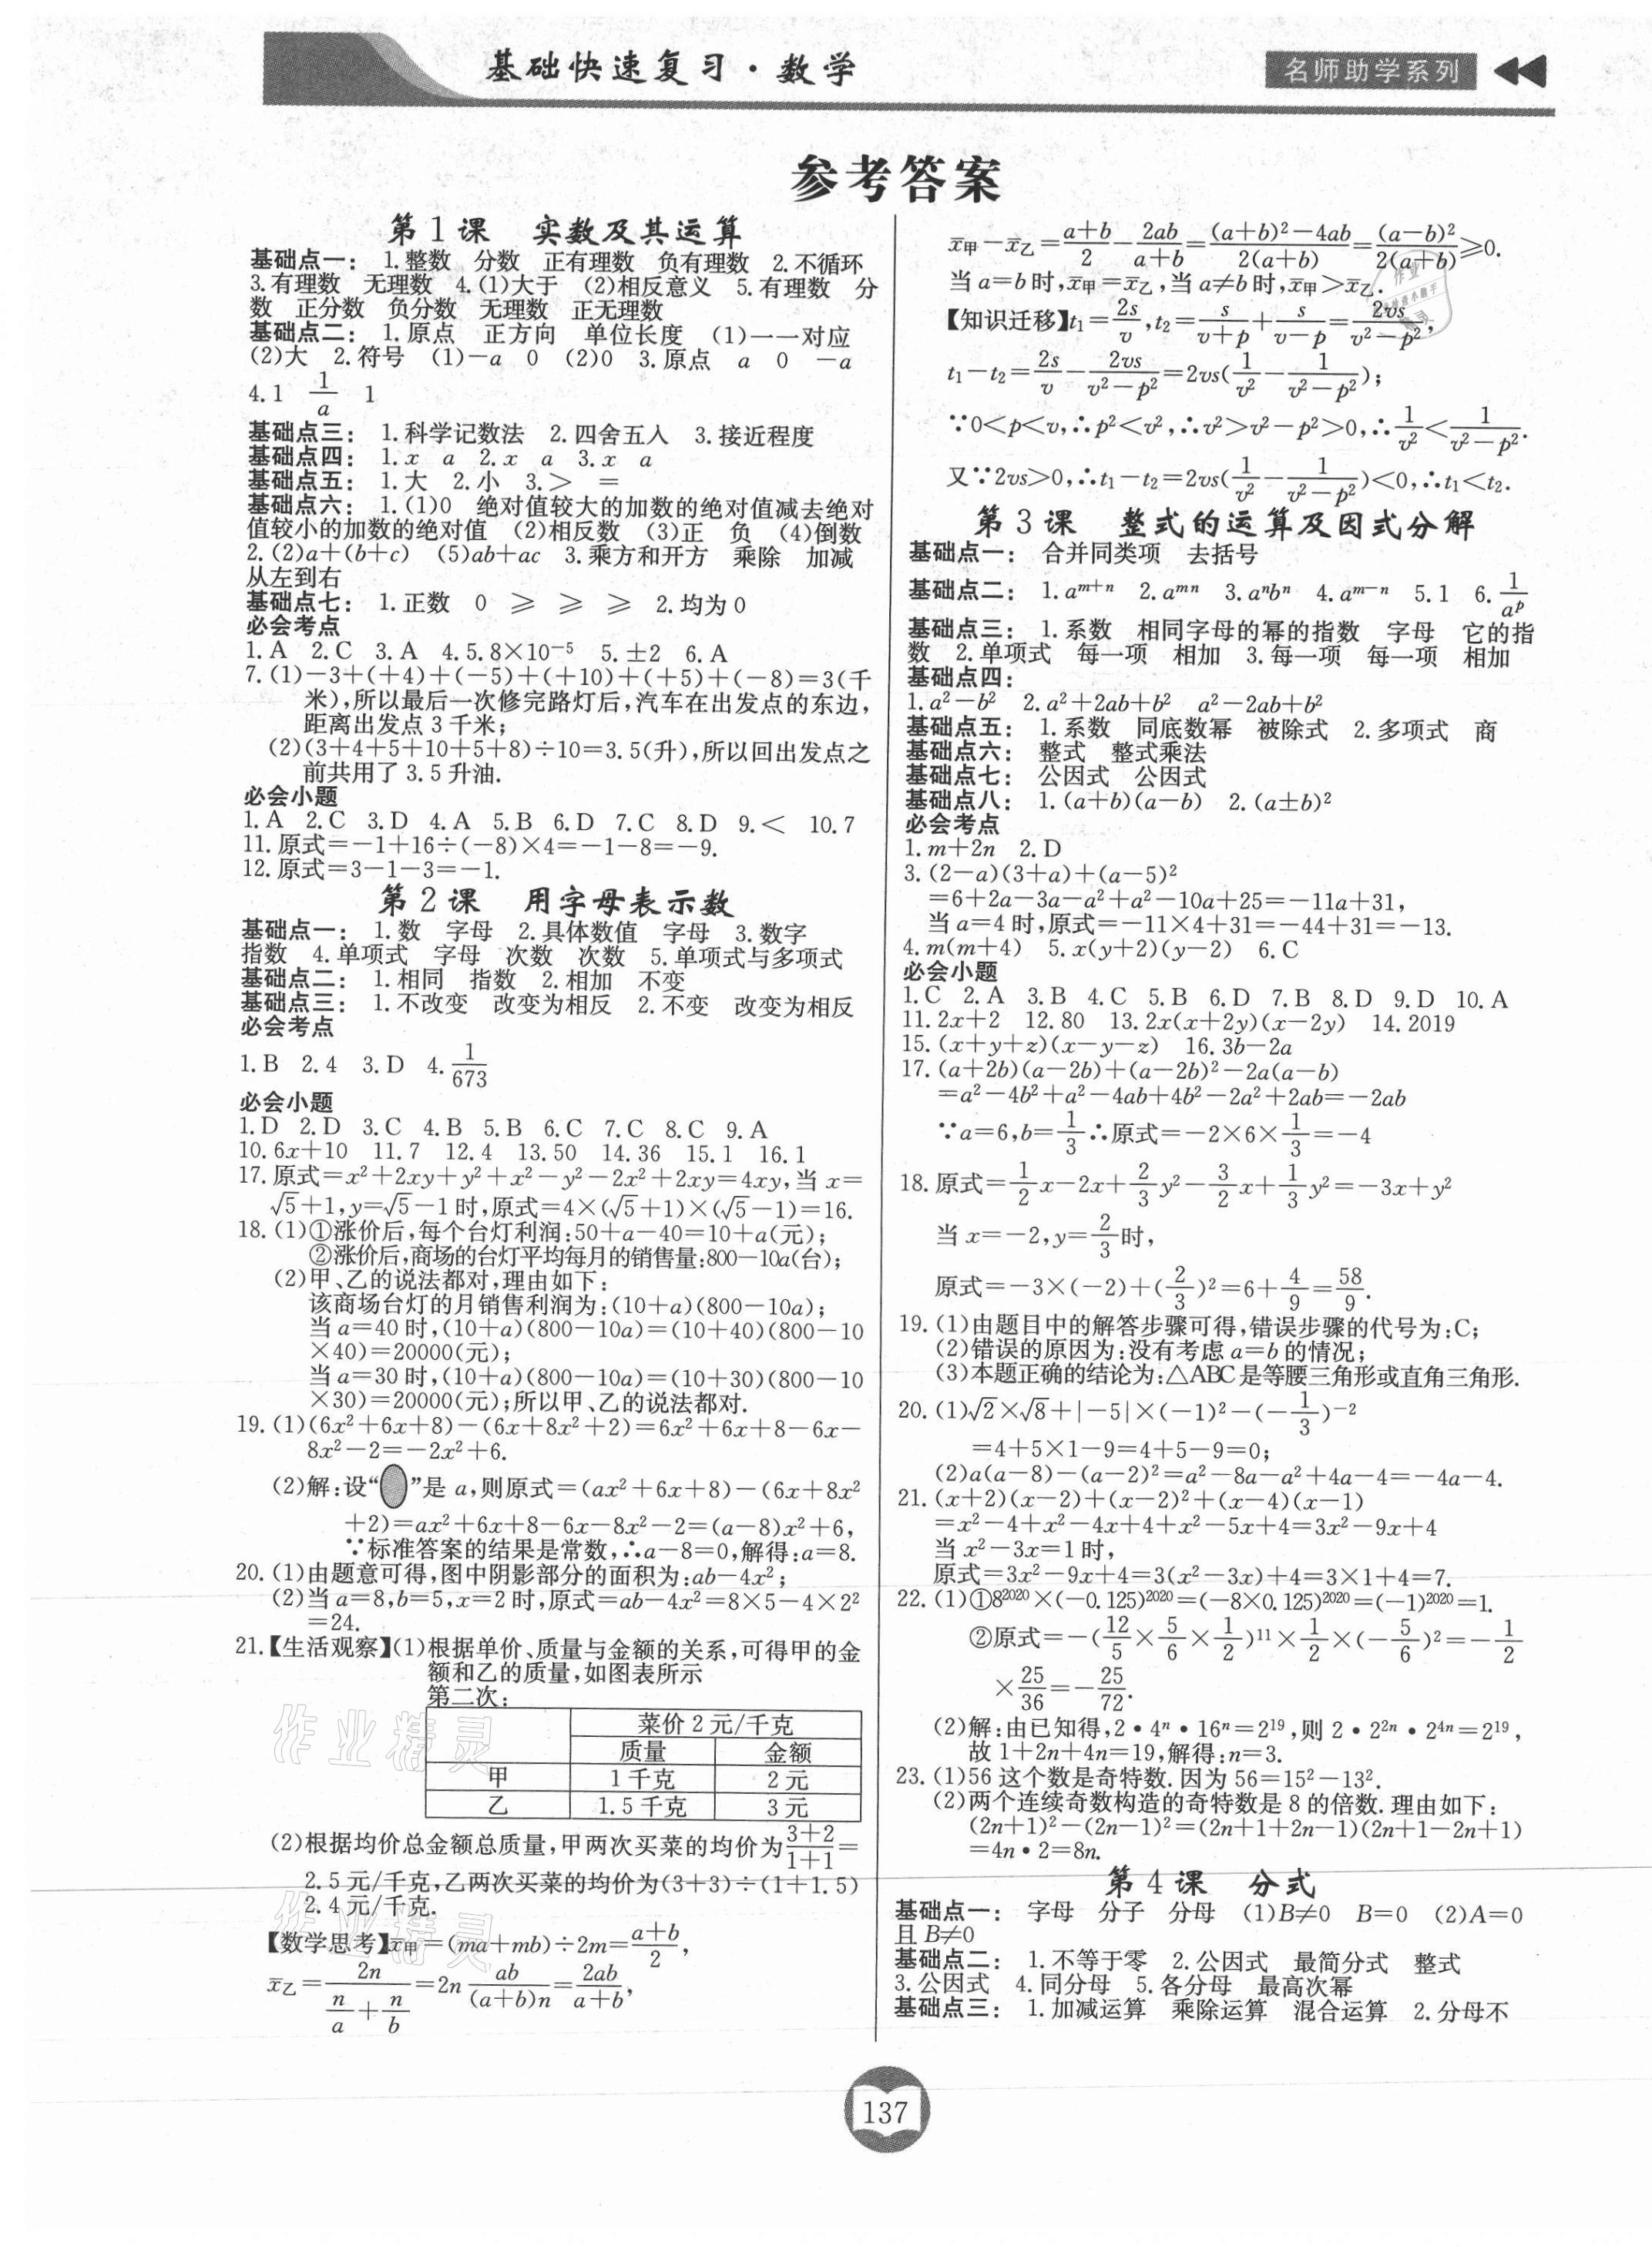 基础快速复习·数学
名师助学系列
参考答案
第1课 实数及其运算
基础点一: 1.整数 分数 正有理数 负有理数 2.不循环
3.有理数 无理数 4.(1)大于 (2)相反意义 5.有理数 分
数 正分数 负分数 无理数 正无理数
基础点二: 1.原点 正方向 单位长度 (1)一一对应
(2)大 2.符号 (1)-a 0 (2)0 3.原点 a 0 -a
4.1 1/a 1
基础点三: 1.科学记数法 2.四舍五入 3.接近程度
基础点四: 1.x a 2.x a 3.x a
基础点五: 1.大 2.小 3.> =
基础点六: 1.(1)0 绝对值较大的加数的绝对值减去绝对
值较小的加数的绝对值 (2)相反数 (3)正 负 (4)倒数
2.(2)a+(b+c) (5)ab+ac 3.乘方和开方 乘除 加减
从左到右
基础点七: 1.正数 0 ⩾ ⩾ ⩾ 2.均为0
必会考点
1.A 2.C 3.A 4.5.8×10⁻⁵ 5.±2 6.A
7.(1)-3+(+4)+(-5)+(+10)+(+5)+(-8)=3(千
米),所以最后一次修完路灯后,汽车在出发点的东边,
距离出发点3千米;
(2)(3+4+5+10+5+8)÷10=3.5(升),所以回出发点之
前共用了3.5升油.
必会小题
1.A 2.C 3.D 4.A 5.B 6.D 7.C 8.D 9.< 10.7
11.原式=-1+16÷(-8)×4=-1-8=-9.
12.原式=3-1-3=-1.
第2课 用字母表示数
基础点一: 1.数 字母 2.具体数值 字母 3.数字
指数 4.单项式 字母 次数 次数 5.单项式与多项式
基础点二: 1.相同 指数 2.相加 不变
基础点三: 1.不改变 改变为相反 2.不变 改变为相反
必会考点
1.B 2.4 3.D 4.1/673
必会小题
1.D 2.D 3.C 4.B 5.B 6.C 7.C 8.C 9.A
10.6x+10 11.7 12.4 13.50 14.36 15.1 16.1
17.原式=x²+2xy+y²+x²-y²-2x²+2xy=4xy,当x=
√5+1,y=√5-1时,原式=4×(√5+1)×(√5-1)=16.
18.(1)①涨价后,每个台灯利润:50+a-40=10+a(元);
②涨价后,商场的台灯平均每月的销售量:800-10a(台);
(2)甲、乙的说法都对,理由如下:
该商场台灯的月销售利润为:(10+a)(800-10a);
当a=40时,(10+a)(800-10a)=(10+40)(800-10
×40)=20000(元);
当a=30时,(10+a)(800-10a)=(10+30)(800-10
×30)=20000(元);所以甲、乙的说法都对.
19.(1)(6x²+6x+8)-(6x+8x²+2)=6x²+6x+8-6x-
8x²-2=-2x²+6.
(2)解:设“ ”是a,则原式=(ax²+6x+8)-(6x+8x²
+2)=ax²+6x+8-6x-8x²-2=(a-8)x²+6,
∵标准答案的结果是常数,∴a-8=0,解得:a=8.
20.(1)由题意可得,图中阴影部分的面积为:ab-4x²;
(2)当a=8,b=5,x=2时,原式=ab-4x²=8×5-4×2²
=24.
21.【生活观察】(1)根据单价、质量与金额的关系,可得甲的金
额和乙的质量,如图表所示
第二次:
菜价2元/千克
质量 金额
甲 1千克 2元
乙 1.5千克 3元
(2)根据均价总金额总质量,甲两次买菜的均价为(3+2)/(1+1)=
2.5元/千克,乙两次买菜的均价为(3+3)÷(1+1.5)
2.4元/千克.
【数学思考】x̄甲=(ma+mb)÷2m=(a+b)/2,
x̄乙=2n/(n/a+n/b)=2n ab/((a+b)n)=2ab/(a+b),
x̄甲-x̄乙=(a+b)/2-2ab/(a+b)=((a+b)²-4ab)/(2(a+b))=(a-b)²/(2(a+b))⩾0.
当a=b时,x̄甲=x̄乙,当a≠b时,x̄甲>x̄乙.
【知识迁移】t₁=2s/v,t₂=s/(v+p)+s/(v-p)=2vs/(v²-p²),
t₁-t₂=2s/v-2vs/(v²-p²)=2vs(1/v²-1/(v²-p²));
∵0<p<v,∴p²<v²,∴v²>v²-p²>0,∴1/v²<1/(v²-p²).
又∵2vs>0,∴t₁-t₂=2vs(1/v²-1/(v²-p²))<0,∴t₁<t₂.
第3课 整式的运算及因式分解
基础点一: 合并同类项 去括号
基础点二: 1.aᵐ⁺ⁿ 2.aᵐⁿ 3.aⁿbⁿ 4.aᵐ⁻ⁿ 5.1 6.1/aᵖ
基础点三: 1.系数 相同字母的幂的指数 字母 它的指
数 2.单项式 每一项 相加 3.每一项 每一项 相加
基础点四:
1.a²-b² 2.a²+2ab+b² a²-2ab+b²
基础点五: 1.系数 同底数幂 被除式 2.多项式 商
基础点六: 整式 整式乘法
基础点七: 公因式 公因式
基础点八: 1.(a+b)(a-b) 2.(a±b)²
必会考点
1.m+2n 2.D
3.(2-a)(3+a)+(a-5)²
=6+2a-3a-a²+a²-10a+25=-11a+31,
当a=4时,原式=-11×4+31=-44+31=-13.
4.m(m+4) 5.x(y+2)(y-2) 6.C
必会小题
1.C 2.A 3.B 4.C 5.B 6.D 7.B 8.D 9.D 10.A
11.2x+2 12.80 13.2x(x+2y)(x-2y) 14.2019
15.(x+y+z)(x-y-z) 16.3b-2a
17.(a+2b)(a-2b)+(a-2b)²-2a(a-b)
=a²-4b²+a²-4ab+4b²-2a²+2ab=-2ab
∵a=6,b=1/3∴原式=-2×6×1/3=-4
18.原式=1/2x-2x+2/3y²-3/2x+1/3y²=-3x+y²
当x=-2,y=2/3时,
原式=-3×(-2)+(2/3)²=6+4/9=58/9.
19.(1)由题目中的解答步骤可得,错误步骤的代号为:C;
(2)错误的原因为:没有考虑a=b的情况;
(3)本题正确的结论为:△ABC是等腰三角形或直角三角形.
20.(1)√2×√8+|-5|×(-1)²-(-1/3)⁻²
=4+5×1-9=4+5-9=0;
(2)a(a-8)-(a-2)²=a²-8a-a²+4a-4=-4a-4.
21.(x+2)(x-2)+(x-2)²+(x-4)(x-1)
=x²-4+x²-4x+4+x²-5x+4=3x²-9x+4
当x²-3x=1时,
原式=3x²-9x+4=3(x²-3x)+4=3×1+4=7.
22.(1)①8²⁰²⁰×(-0.125)²⁰²⁰=(-8×0.125)²⁰²⁰=(-1)²⁰²⁰=1.
②原式=-(12/5×5/6×1/2)¹¹×1/2×(-5/6)²=-1/2
×25/36=-25/72.
(2)解:由已知得,2•4ⁿ•16ⁿ=2¹⁹,则2•2²ⁿ•2⁴ⁿ=2¹⁹,
故1+2n+4n=19,解得:n=3.
23.(1)56这个数是奇特数.因为56=15²-13².
(2)两个连续奇数构造的奇特数是8的倍数.理由如下:
(2n+1)²-(2n-1)²=(2n+1+2n-1)(2n+1-2n+1)
=4n•2=8n.
第4课 分式
基础点一: 字母 分子 分母 (1)B≠0 B=0 (2)A=0
且B≠0
基础点二: 1.不等于零 2.公因式 最简分式 整式
3.公因式 4.同分母 5.各分母 最高次幂
基础点三: 1.加减运算 乘除运算 混合运算 2.分母不
137
作业精灵
作业精灵